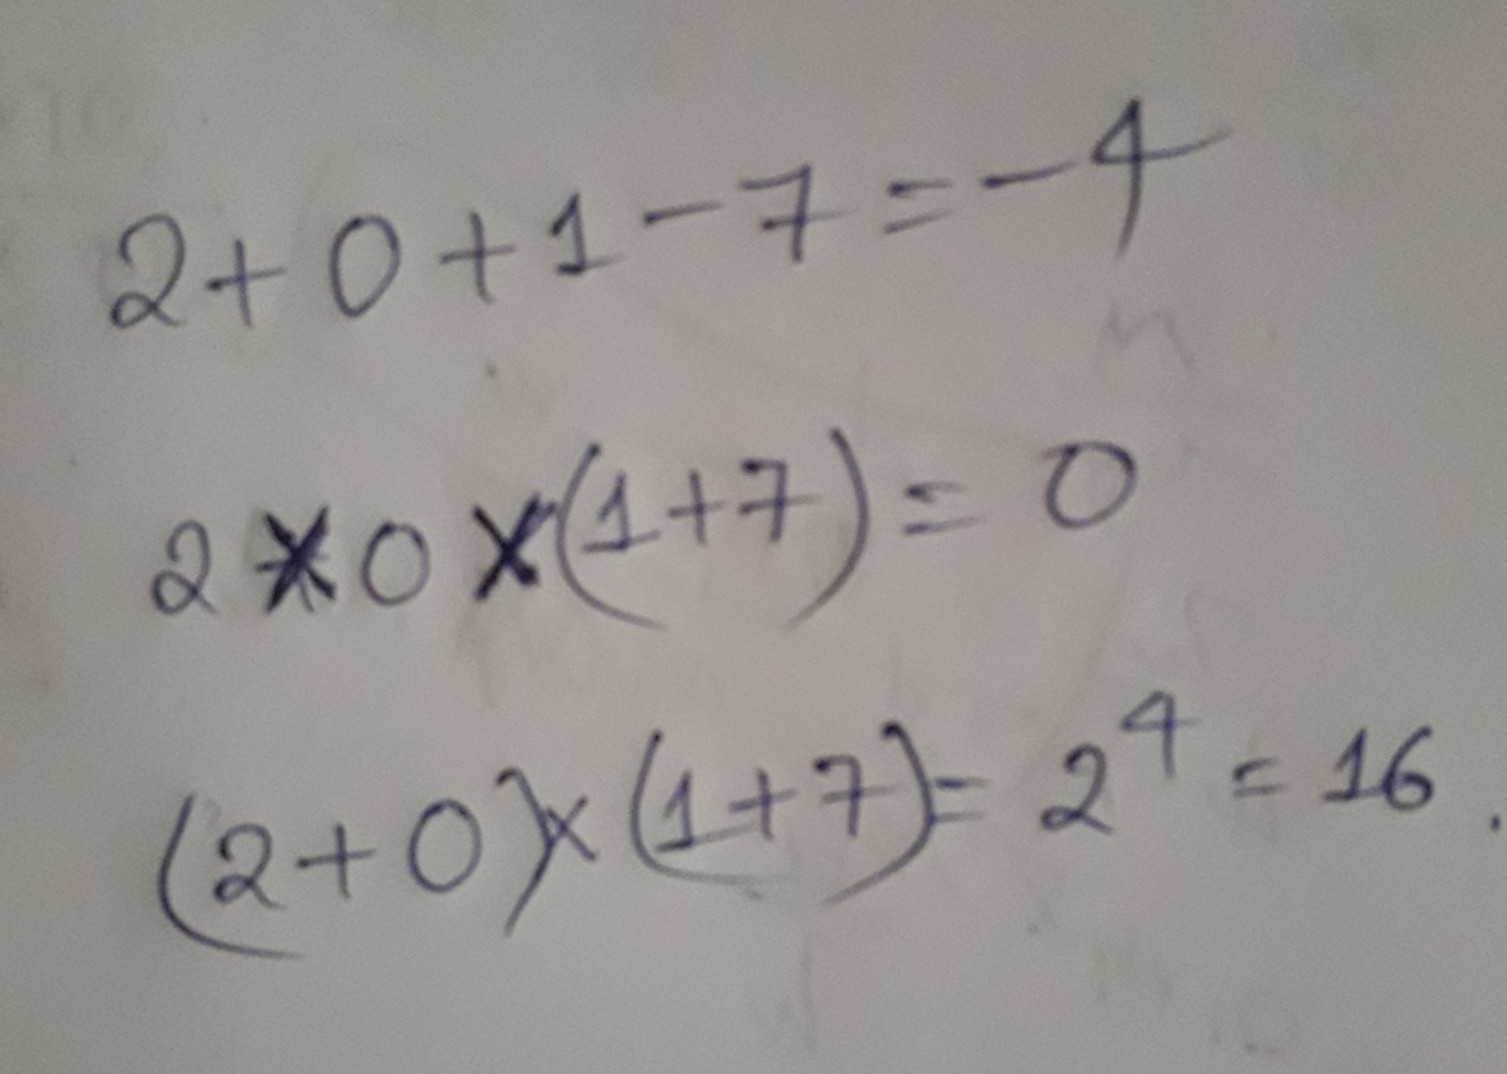 2+0+1-7=-4
2×0×(1+7)=0
(2+0)×(1+7)=2⁴=16.